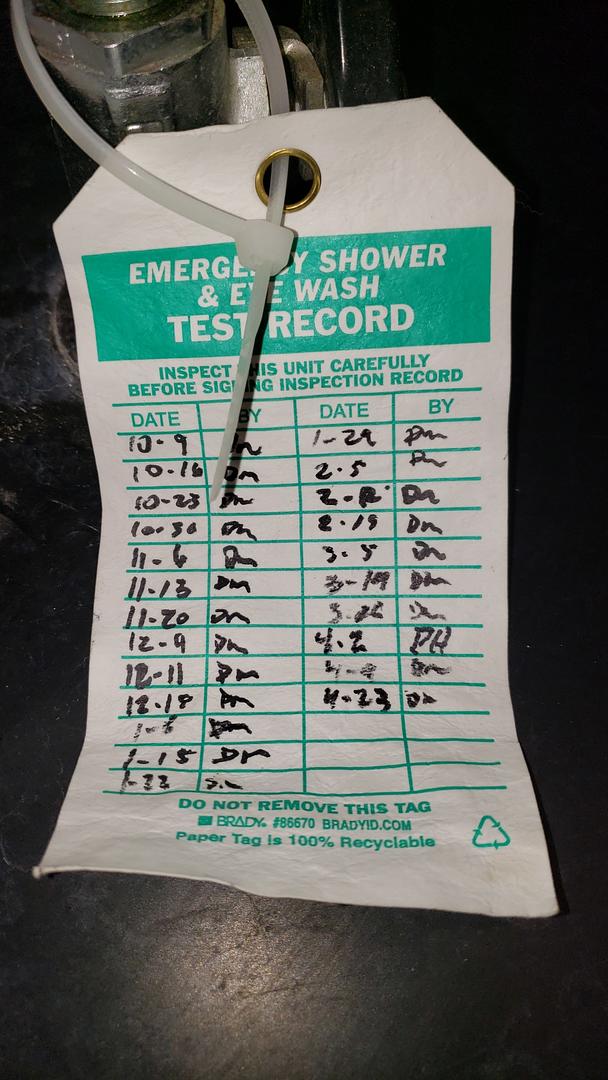 EMERGENCY SHOWER
& EYE WASH
TEST RECORD
INSPECT THIS UNIT CAREFULLY
BEFORE SIGNING INSPECTION RECORD
DATE BY DATE BY
10-9 Dm 1-29 Dm
10-16 Dm 2-5 Dm
10-23 Dm Dm
10-30 Dm 2-19 Dm
11-6 Dm 3-5 Dm
11-13 Dm 3-19 Dm
11-20 Dm
12-9 Dm 4-2 DH
12-11 Dm Dm
12-18 Dm 4-23 Dm
Dm
1-15 Dm
1-22
DO NOT REMOVE THIS TAG
BRADY. #86670 BRADYID.COM
Paper Tag is 100% Recyclable